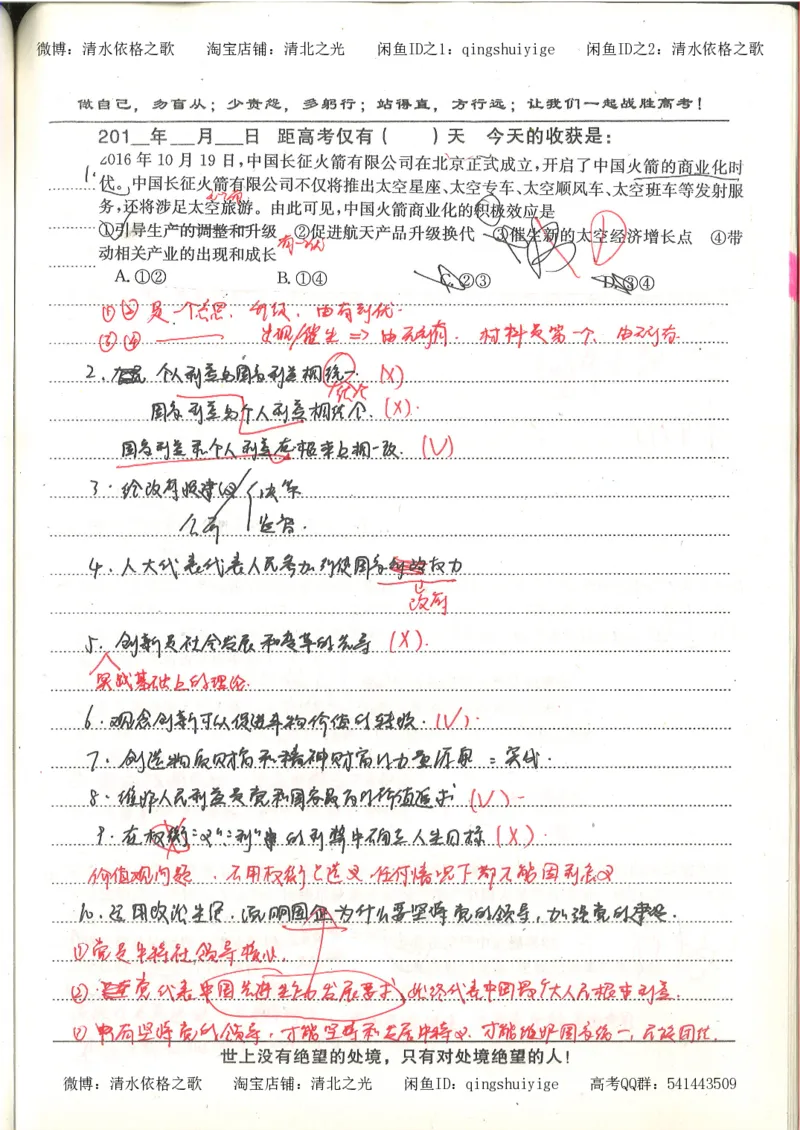 微博：清水依格之歌 淘宝店铺：清北之光 闲鱼ID之1：qingshuiyige 闲鱼ID之2：清水依格之歌
做自己，勿盲从；少责怨，多躬行；站得直，方行远；让我们一起战胜高考！
201__年___月___日 距高考仅有（ ）天 今天的收获是：
1. 2016年10月19日，中国长征火箭有限公司在北京正式成立，开启了中国火箭的商业化时
代。中国长征火箭有限公司不仅将推出太空星座、太空专车、太空顺风车、太空班车等发射服
务，还将涉足太空旅游。由此可见，中国火箭商业化的积极效应是
①引导生产的调整和升级 ②促进航天产品升级换代 ③催生新的太空经济增长点 ④带
动相关产业的出现和成长
A.①② B.①④ C.②③ D.③④
①② 是一个意思，升级，由有到优.
③④ —— 出现/催生 => 由无到有. 材料是第一个，由无到有.
2. 个人利益与国家利益相统一 (X)
结合
国家利益与个人利益相结合. (X).
国家利益和个人利益在根本上相一致. (V)
3. 给政府提建议 决策
监督.
4. 人大代表代表人民参加行使国家权力
政府
5. 创新是社会发展和变革的先导 (X).
实践基础上的理论.
6. 观念创新可以促进事物价值的转换. (V).
7. 创造物质财富和精神财富的力量源泉 = 实践.
8. 维护人民利益是党和国家最高的价值追求 (V).
9. 在权衡"义""利"中的利弊中确立人生目标 (X).
价值观问题，不用权衡 任何情况下都不能因利忘义
10. 运用政治生活，说明国企为什么要坚持党的领导，加强党的建设.
①党是中特社领导核心.
②党代表中国先进生产力发展要求，始终代表中国最广大人民根本利益.
③ 只有坚持党的领导，才能坚持和发展中特义，才能维护国家统一，民族团结.
世上没有绝望的处境，只有对处境绝望的人！
微博：清水依格之歌 淘宝店铺：清北之光 闲鱼ID：qingshuiyige 高考QQ群：541443509